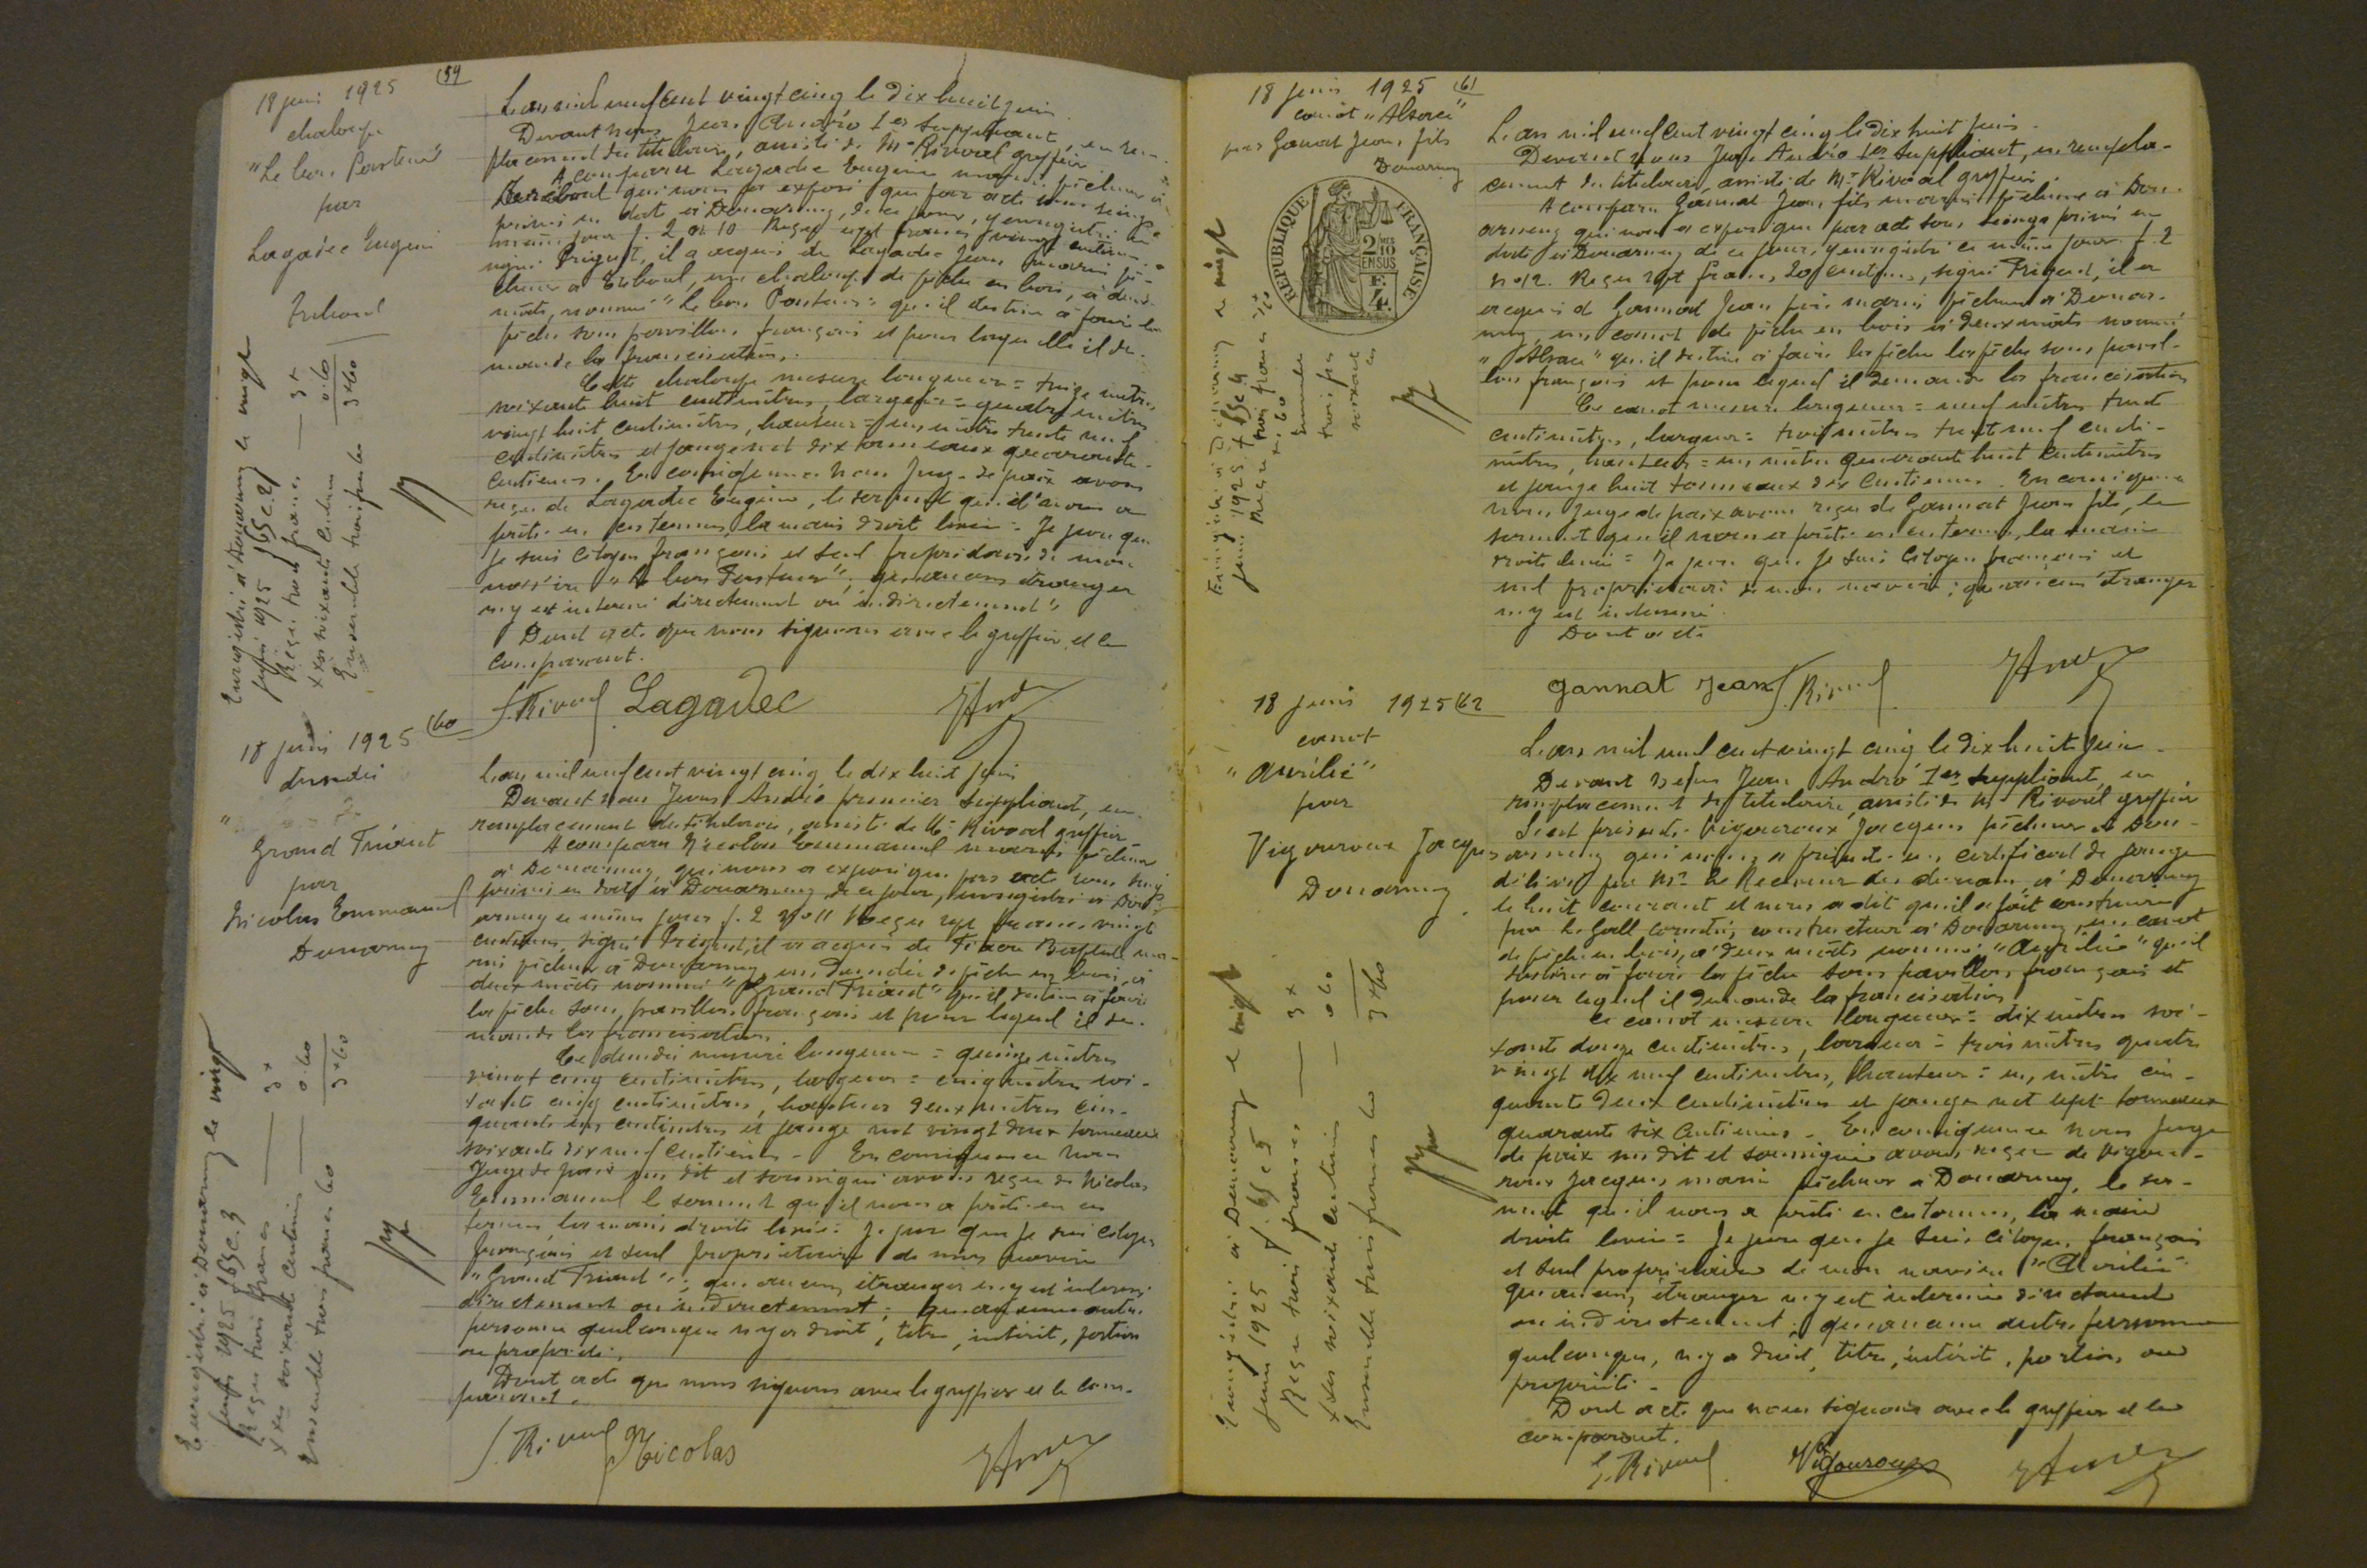 18 juin 1925 (59
chaloupe
"Le bon Pasteur"
par
Lagadec Eugène
Tréboul
L'an mil neuf cent vingt cinq le dix huit juin
Devant nous Jean Andro 1er suppléant, en rem-
placement du titulaire, assisté de Mr Rivoal greffier
A comparu Lagadec Eugène marin pêcheur à
Tréboul qui nous a exposé que par acte sous seing
privé en date à Douarnenez, de ce jour, y enregistré le
même jour f. 2 no 10 Reçu sept francs vingt centimes
signé Frigent, il a acquis de Lagadec Jean marin pê-
cheur à Tréboul, une chaloupe de pêche en bois, à deux
mâts, nommé "Le bon Pasteur" qu'il destine à faire la
pêche sous pavillon français et pour laquelle il de-
mande la francisation.
Cette chaloupe mesure longueur = treize mètres
soixante huit centimètres, largeur = quatre mètres
vingt huit centimètres, hauteur = un mètre trente neuf
centimètres et jauge net dix tonneaux quarante
centièmes. En conséquence nous Juge de paix avons
reçu de Lagadec Eugène, le serment qu'il nous a
prêté en ces termes, la main droite levée = Je jure que
Je suis citoyen français et seul propriétaire de mon
navire "Le bon Pasteur"; qu'aucun étranger
n'y est intéressé directement ou indirectement"
Dont acte que nous signons avec le greffier et le
comparant.
S. Rivoal Lagadec
Enregistré à Douarnenez le vingt
juin 1925 f 65 c. 2
Reçu trois francs — 3 "
soixante centimes 0.60
Ensemble trois francs 60 3.60
18 juin 1925 (60
dundee
"Grand Friant
par
Nicolas Emmanuel
Douarnenez
L'an mil neuf cent vingt cinq le dix huit juin
Devant nous Jean Andro premier suppléant, en
remplacement du titulaire, assisté de Mr Rivoal greffier
A comparu Nicolas Emmanuel marin pêcheur
à Douarnenez, qui nous a exposé que par acte sous seing
privé en date à Douarnenez de ce jour, enregistré à Dou-
arnenez le même jour f. 2 no 11 Reçu sept francs vingt
centimes, signé Frigent, il a acquis de Baptiste ma-
rin pêcheur à Douarnenez, un Dundée de pêche en bois, à
deux mâts nommé "Grand Friant" qu'il destine à faire
la pêche sous pavillon français et pour lequel il de-
mande la francisation.
Ce dundée mesure longueur = quinze mètres
vingt cinq centimètres, largeur = cinq mètres soi-
xante cinq centimètres, hauteur deux mètres cin-
quante cinq centimètres et jauge net vingt deux tonneaux
soixante dix neuf centièmes - En conséquence nous
Juge de paix sus dit et soussigné avons reçu de Nicolas
Emmanuel le serment qu'il nous a prêté en ces
termes, la main droite levée : Je jure que Je suis citoyen
français et seul propriétaire de mon navire
"Grand Friant"; qu'aucun étranger n'y est intéressé
directement ou indirectement ; qu'aucune autre
personne quelconque n'y a droit, titre, intérêt, portion
ou propriété.
Dont acte que nous signons avec le greffier et le com-
parant.
S. Rivoal Nicolas
Enregistré à Douarnenez le vingt
juin 1925 f 65 c. 3
Reçu trois francs — 3 "
soixante centimes — 0.60
Ensemble trois francs 60 3.60
18 juin 1925 (61
canot "Alsace"
par Gannat Jean, fils
Douarnenez
RÉPUBLIQUE FRANÇAISE
2/10
EN SUS
F.
4.
L'an mil neuf cent vingt cinq le dix huit juin.
Devant nous Jean Andro 1er suppléant, en rempla-
cement du titulaire, assisté de Mr Rivoal greffier
A comparu Gannat Jean, fils marin pêcheur à Dou-
arnenez qui nous a exposé que par acte sous seing privé en
date à Douarnenez de ce jour, y enregistré ce même jour f. 2
no 12. Reçu sept francs, 20 centimes, signé Frigent, il a
acquis de Gannat Jean père marin pêcheur à Douar-
nenez, un canot de pêche en bois à deux mâts nommé
"Alsace" qu'il destine à faire la pêche la pêche sous pavil-
lon français et pour lequel il demande la francisation
Ce canot mesure longueur = neuf mètres trente
centimètres, largeur = trois mètres trente neuf centi-
mètres, hauteur = un mètre quarante huit centimètres
et jauge huit tonneaux dix centièmes. En conséquence
nous Juge de paix avons reçu de Gannat Jean fils, le
serment qu'il nous a prêté en ces termes, la main
droite levée = Je jure que Je suis citoyen français et
seul propriétaire de mon navire ; qu'aucun étranger
n'y est intéressé.
Dont acte
Gannat Jean S. Rivoal
Enregistré à Douarnenez le vingt
juin 1925 f 65 c 4
Reçu trois francs
Ensemble
trois frs
soixante
18 juin 1925 (62
canot
"Aurélie"
par
Vigouroux Jacques
Douarnenez
L'an mil neuf cent vingt cinq le dix huit juin -
Devant nous Jean Andro 1er suppléant, en
remplacement du titulaire, assisté de Mr Rivoal greffier
S'est présenté Vigouroux Jacques pêcheur à Dou-
arnenez qui nous a présenté un certificat de jauge
délivré par Mr le Receveur des douanes à Douarnenez
le huit courant et nous a dit qu'il a fait construire
par Le Gall Corentin, constructeur à Douarnenez, un canot
de pêche en bois, à deux mâts nommé "Aurélie" qu'il
destine à faire la pêche sous pavillon français et
pour lequel il demande la francisation
Ce canot mesure longueur = dix mètres soi-
xante douze centimètres, largeur = trois mètres quatre
vingt dix neuf centimètres, hauteur = un mètre cin-
quante deux centimètres et jauge net sept tonneaux
quarante six centièmes - En conséquence nous Juge
de paix sus dit et soussigné avons reçu de Vigou-
roux Jacques marin pêcheur à Douarnenez, le ser-
ment qu'il nous a prêté en ces termes, la main
droite levée = Je jure que je suis citoyen français
et seul propriétaire de mon navire "Aurélie"
qu'aucun étranger n'y est intéressé directement
ou indirectement ; qu'aucune autre personne
quelconque, n'y a droit, titre, intérêt, portion ou
propriété -
Dont acte que nous signons avec le greffier et le
comparant.
S. Rivoal Vigouroux
Enregistré à Douarnenez le vingt
juin 1925 f. 65 c 5
Reçu trois francs — 3 "
soixante centimes — 0.60
Ensemble trois francs 60 3.60